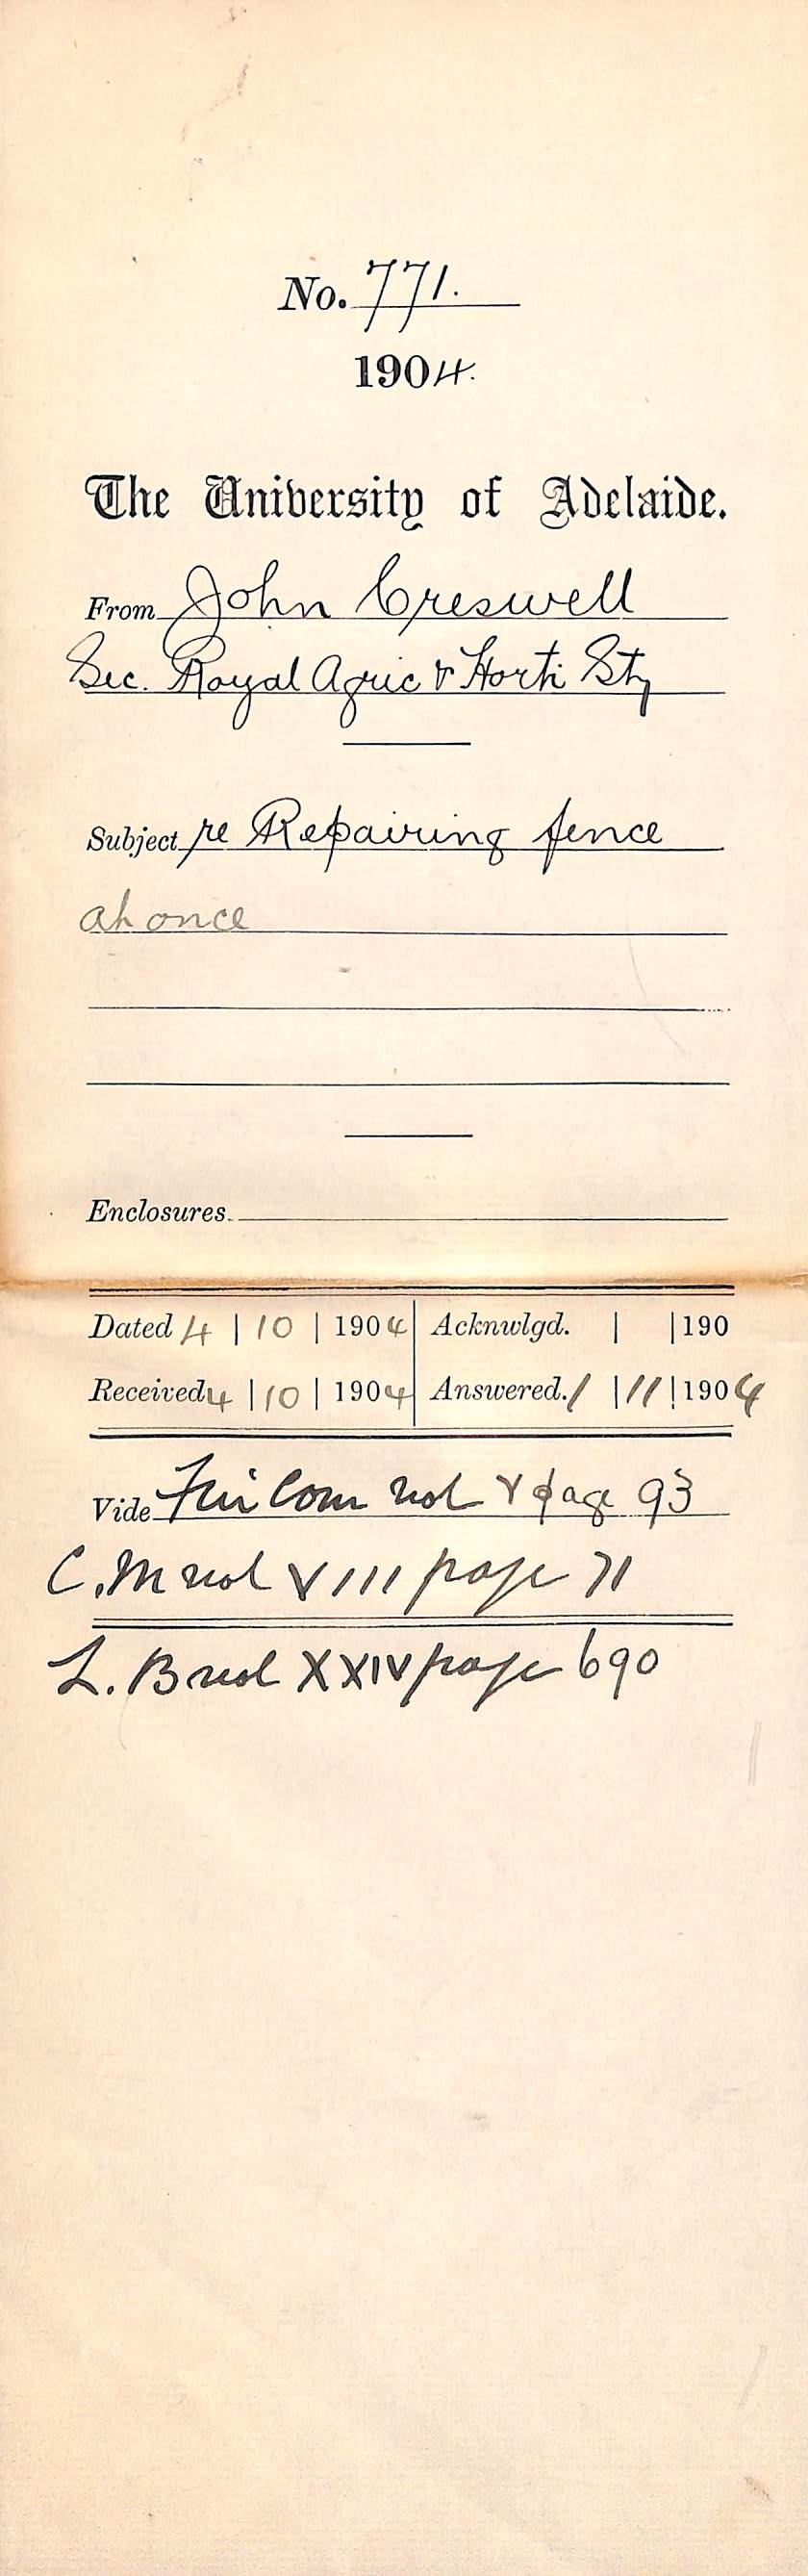 No. 771.
1904.
The University of Adelaide.
From John Creswell
Sec. Royal Agric & Horti Sty
Subject re Repairing fence
at once
Enclosures
Dated 4 | 10 | 1904 Acknwlgd. | | 190
Received 4 | 10 | 1904 Answered. 1 | 11 | 1904
Vide Fin Com vol V page 93
C.M vol VIII page 71
L. B vol XXIV page 690